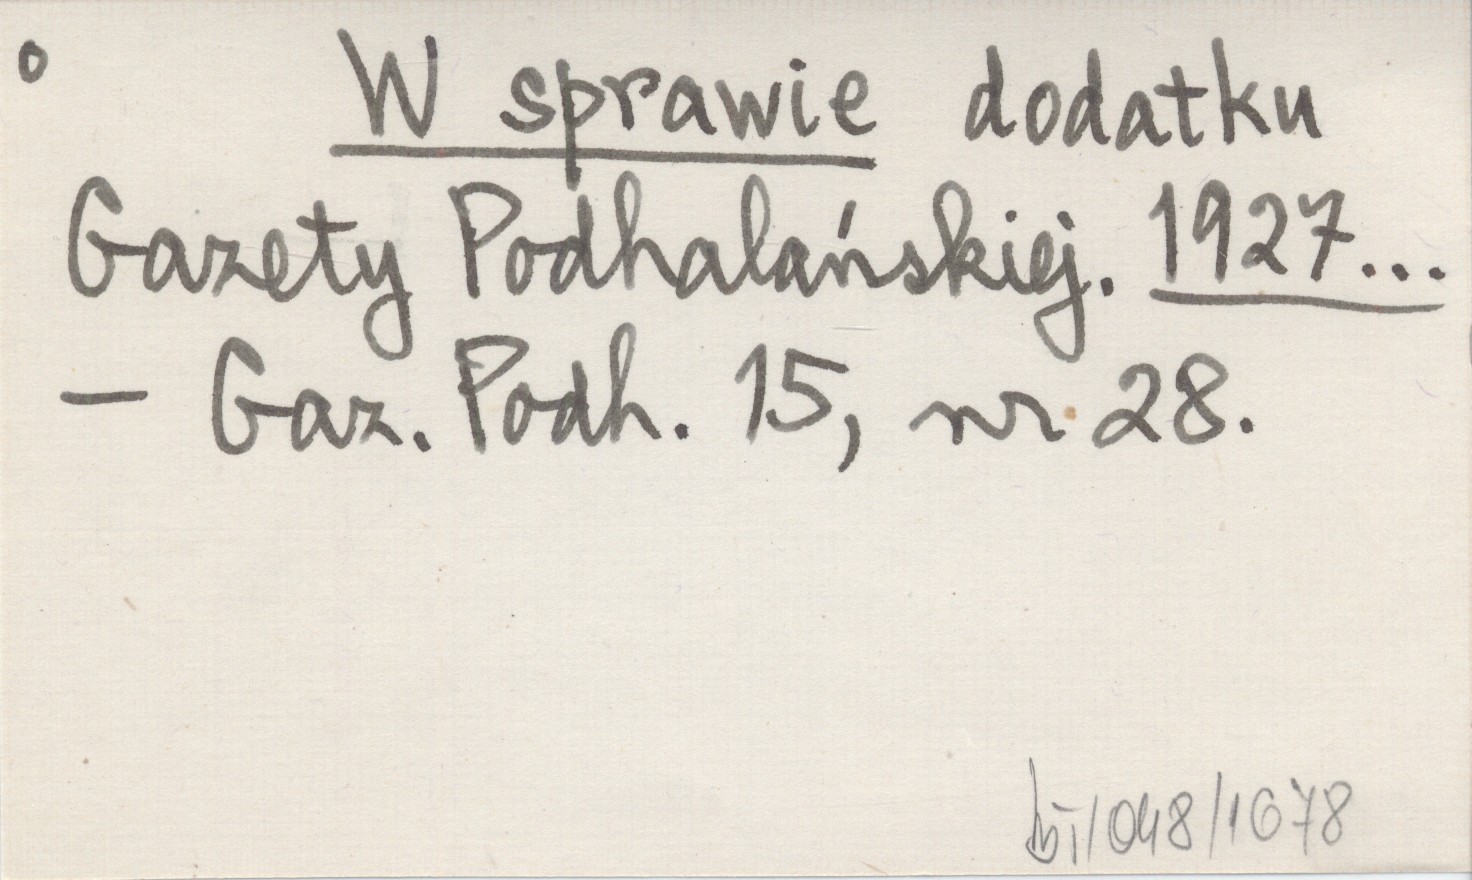 o W sprawie dodatku
Gazety Podhalańskiej. 1927...
– Gaz. Podh. 15, nr 28.
/048/1678